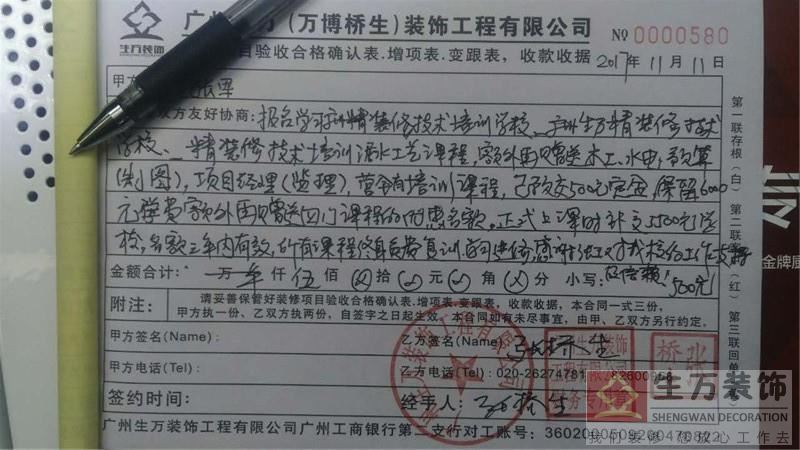 广州生万（万博桥生）装饰工程有限公司
№ 0000580
生万装饰
项目验收合格确认表.增项表.变跟表，收款收据
2017年11月11日
甲方
张军
双方友好协商：报名学习广州精装修技术培训学校、广州生万精装修技术
学校、精装修技术培训泥水工艺课程，额外再赠送木工、水电、预算
（制图），项目经理（监理），营销培训课程，已预交500元定金，保留6000
元学费额外再赠送四门课程的优惠名额。正式上课时补交5500元学
校，名额三年内有效，所有课程终身免费复训
金额合计： 万 仟 伍 佰 拾 元 角 分 小写： 500元
附注：
请妥善保管好装修项目验收合格确认表.增项表.变跟表，收款收据，本合同一式三份，
甲方执一份、乙双方执两份，自签字之日起生效，本合同如有未尽事宜，由甲、乙双方另行约定。
甲方签名(Name)
乙方签名(Name) 张桥生
甲方电话(Tel)：
乙方电话(Tel)：020-26274781 82600958
签约时间：
经手人： 张桥生
广州生万装饰工程有限公司广州工商银行第二支行对工账号：3602000509200470822
第一联存根（白） 第二联客（红） 第三联回单
金牌
生万装饰
SHENGWAN DECORATION
我们装修 您放心工作去